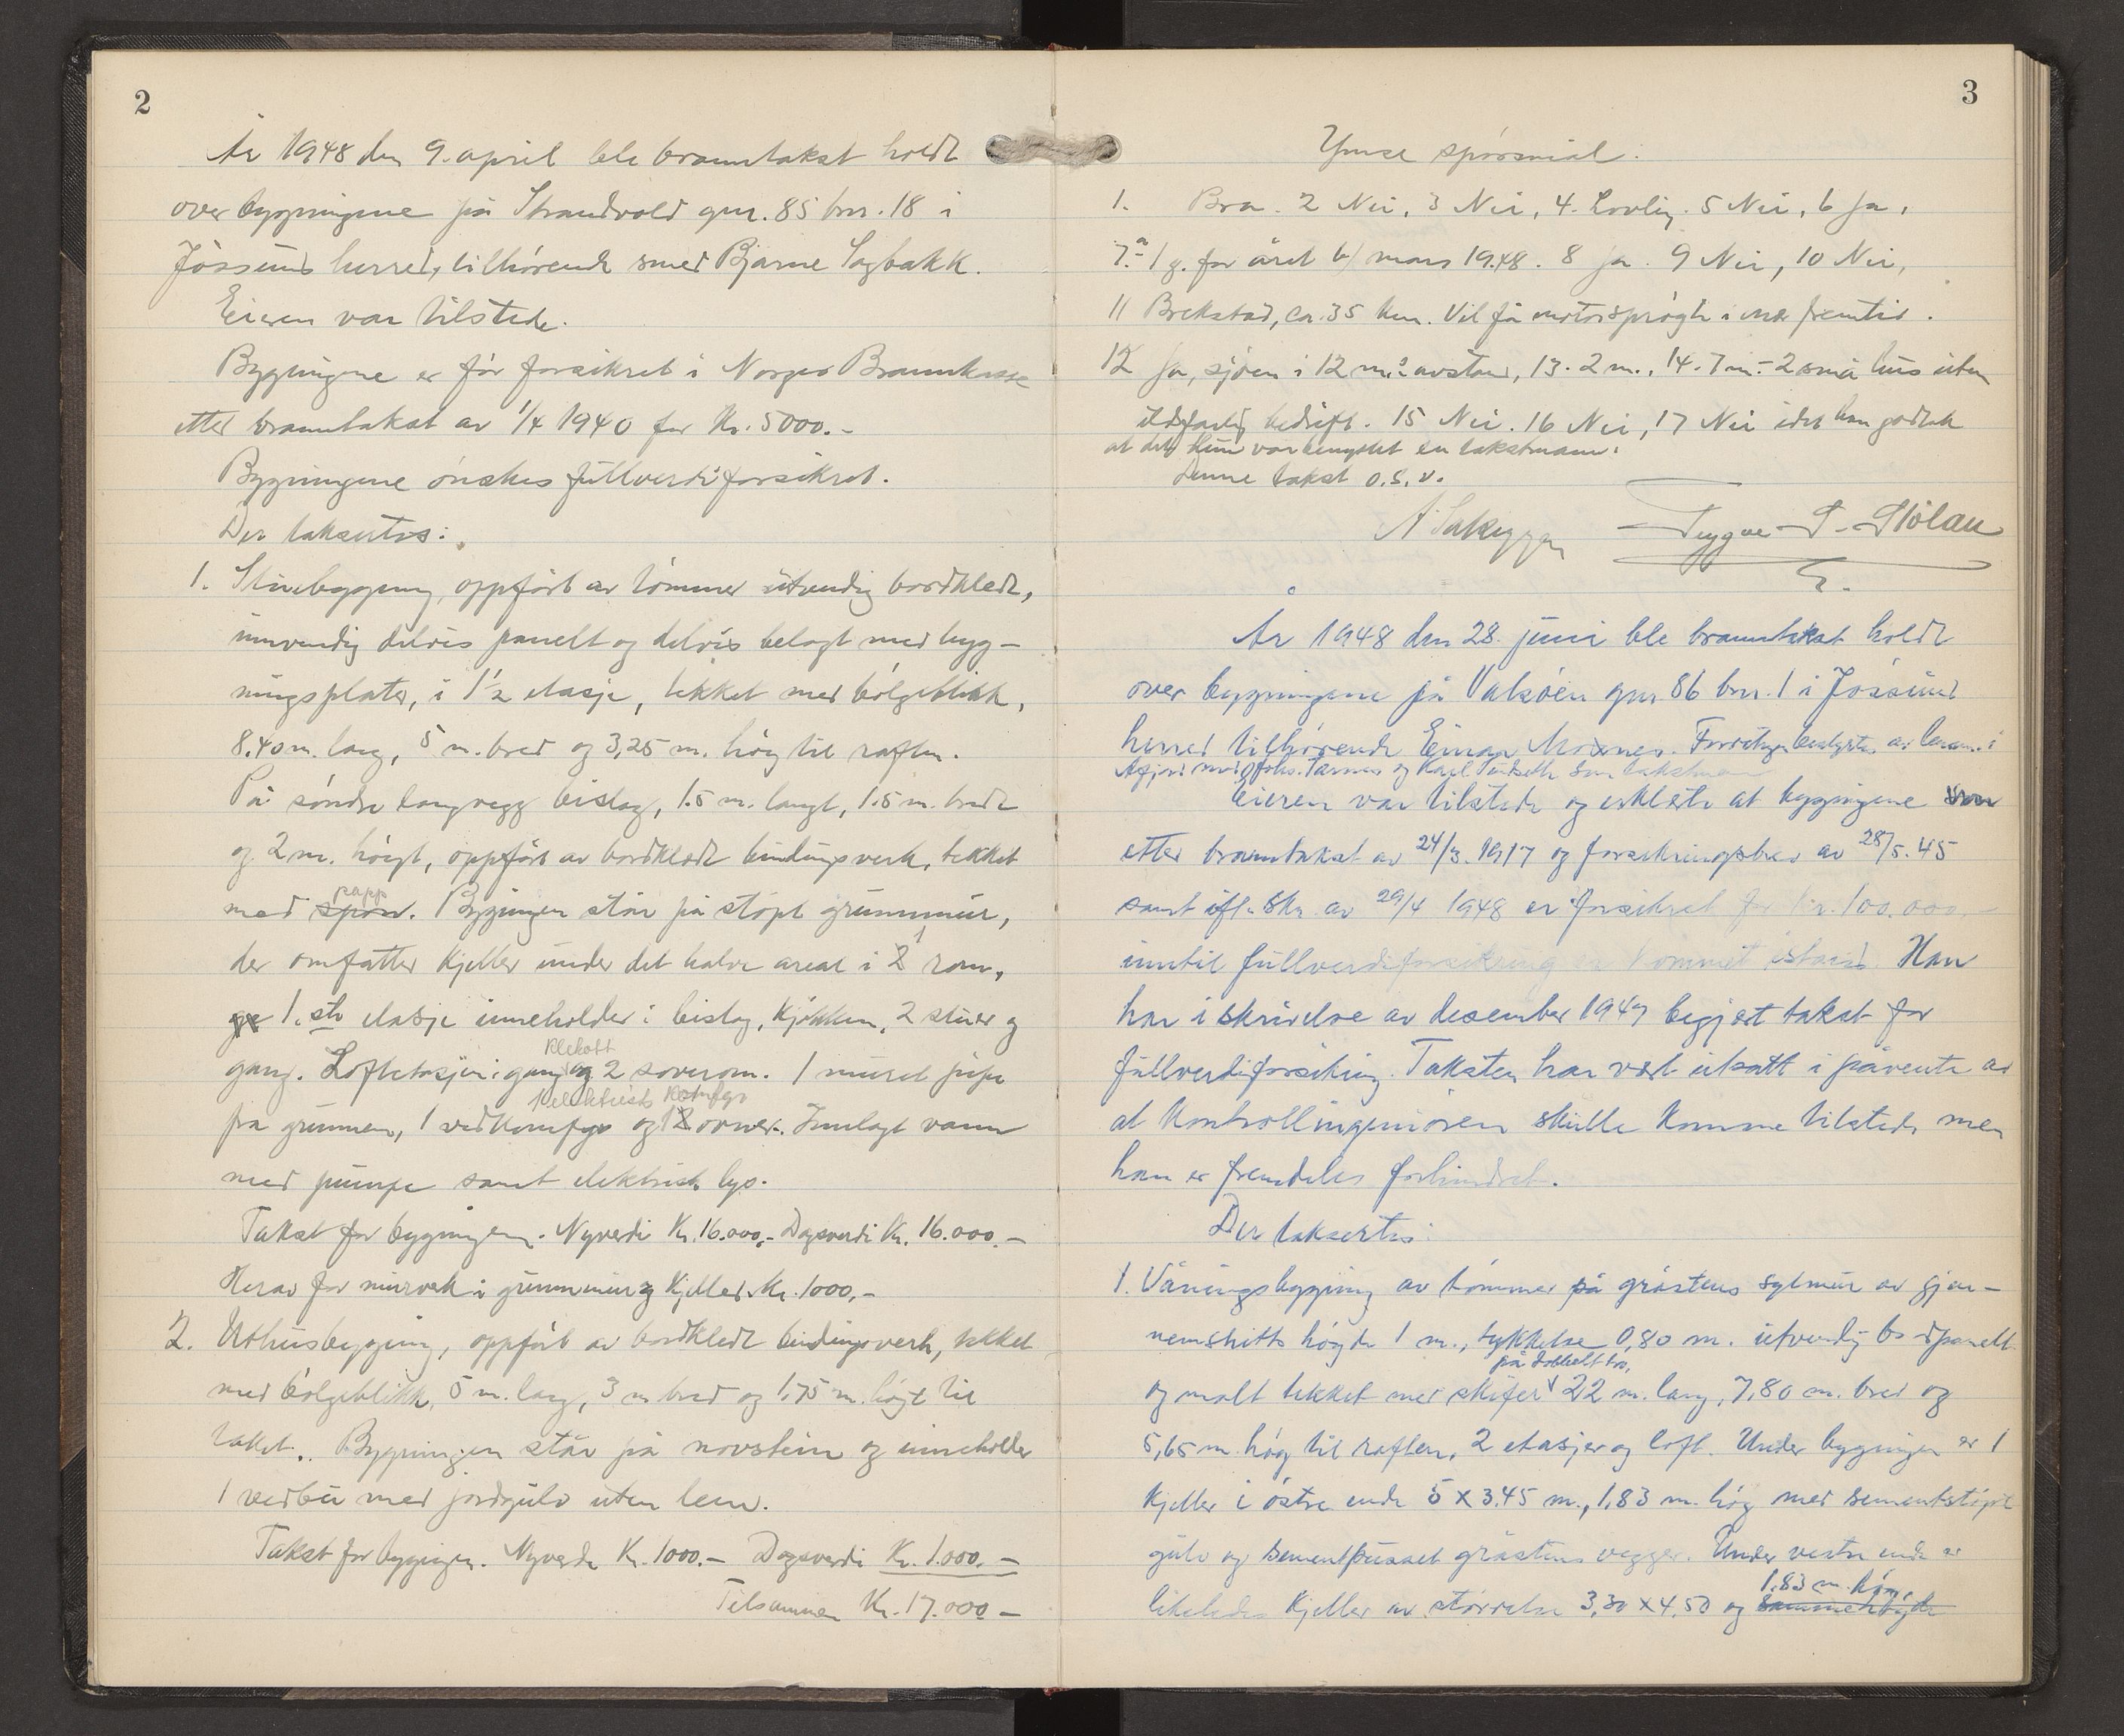 2
År 1948 den 9. april ble branntakst holdt
over bygningene på Strandvold gnr. 85 bnr. 18 i
Jössund herred, tilhörende smed Bjarne Sagbakk.
Eieren var tilstede.
Bygningene er för forsikret i Norges Brannkasse
etter branntakst av 1/4 1940 for Kr. 5000.-
Bygningene önskes fullverdiforsikret.
Der taksertes:
1. Stuebygning, oppfört av tömmer utvendig bordkledt,
innvendig delvis panelt og delvis belagt med byg-
ningsplater, i 1½ etasje, tekket med bölgeblikk,
8.40 m. lang, 5 m. bred og 3,25 m. höy til raften.
På söndre langvegg bislag, 1.5 m. langt, 1.5 m. bredt
og 2 m. höyt, oppfört av bordkledt bindingsverk, tekket
papp
med spon. Bygningen står på stöpt grunnmur,
1
der omfatter kjeller under det halve areal i 2 rom,
1. ste etasje inneholder: bislag, kjökken, 2 stuer og
klekott
gang. Loftetasjen: gang og 2 soverom. 1 muret pipe
1 elektrisk komfyr
fra grunnen, 1 vedkomfyr og 12 ovner. Innlagt vann
med pumpe samt elektrisk lys.
Takst for bygningen. Nyverdi Kr. 16.000,- Dagsverdi Kr. 16.000.-
Herav for murverk i grunnmur og kjeller Kr. 1000,-
2. Uthusbygning, oppfört av bordkledt bindingsverk, tekket
med bölgeblikk, 5 m. lang, 3 m. bred og 1,75 m. höyt til
taket. Bygningen står på novstein og inneholder
1 vedbu med jordgulv uten lem.
Takst for bygningen. Nyverdi Kr. 1000.- Dagsverdi Kr. 1.000.-
Tilsammen Kr. 17.000-
3
Ymse spörsmål:
1. Bra. 2 Nei, 3 Nei, 4. Lovlig. 5 Nei, 6 Ja,
7.a 1 g. for året b/ mars 1948. 8 ja. 9 Nei, 10 Nei,
11 Brekstad, ca. 35 km. Vil få motorspröyte i nær fremtid.
12 Ja, sjöen i 12 m. avstand, 13. 2 m., 14. 7 m.- 2 små hus uten
ildsfarlig bedrift. 15 Nei. 16 Nei, 17 Nei idet han godtok
at det kun var benyttet en takstmann.
Denne takst o.s.v.
Trygve S. Stölan
År 1948 den 28. juni ble branntakst holdt
over bygningene på Valsöen gnr 86 bnr. 1 i Jössund
herred tilhörende Einar Moxnes. Forretn. bestyrtes av lensm. i
Åfjord med Johs. Tårnes og Karl Tindseth som takstmenn
Eieren var tilstede og erklærte at bygningene som
etter branntakst av 24/3. 1917 og forsikringsbrev av 28/5. 45
samt ifl. skr. av 29/4 1948 er forsikret for Kr. 100.000,-
inntil fullverdiforsikring er kommet istand. Han
har i skrivelse av desember 1947 begjært takst for
fullverdiforsikring. Taksten har vært utsatt i påvente av
at kontrollingeniören skulle komme tilstede, men
han er fremdeles forhindret.
Der taksertes:
1. Våningsbygning av tömmer på gråstens sylmur av gjen-
nemsnitts höyde 1 m., tykkelse 0,80 m. utvendig bordpanelt
på dobbelt tro,
og malt tekket med skifer 22 m. lang, 7,80 m. bred og
5,65 m. höy til raften, 2 etasjer og loft. Under bygningen er 1
kjeller i östre ende 5 x 3.45 m., 1,83 m. höy med sementstöpt
gulv og sementpusset gråstens vegger. Under vestre ende er
1,83 m. höy
likeledes kjeller av störrelse 3,30 x 4,50 og samme höyde